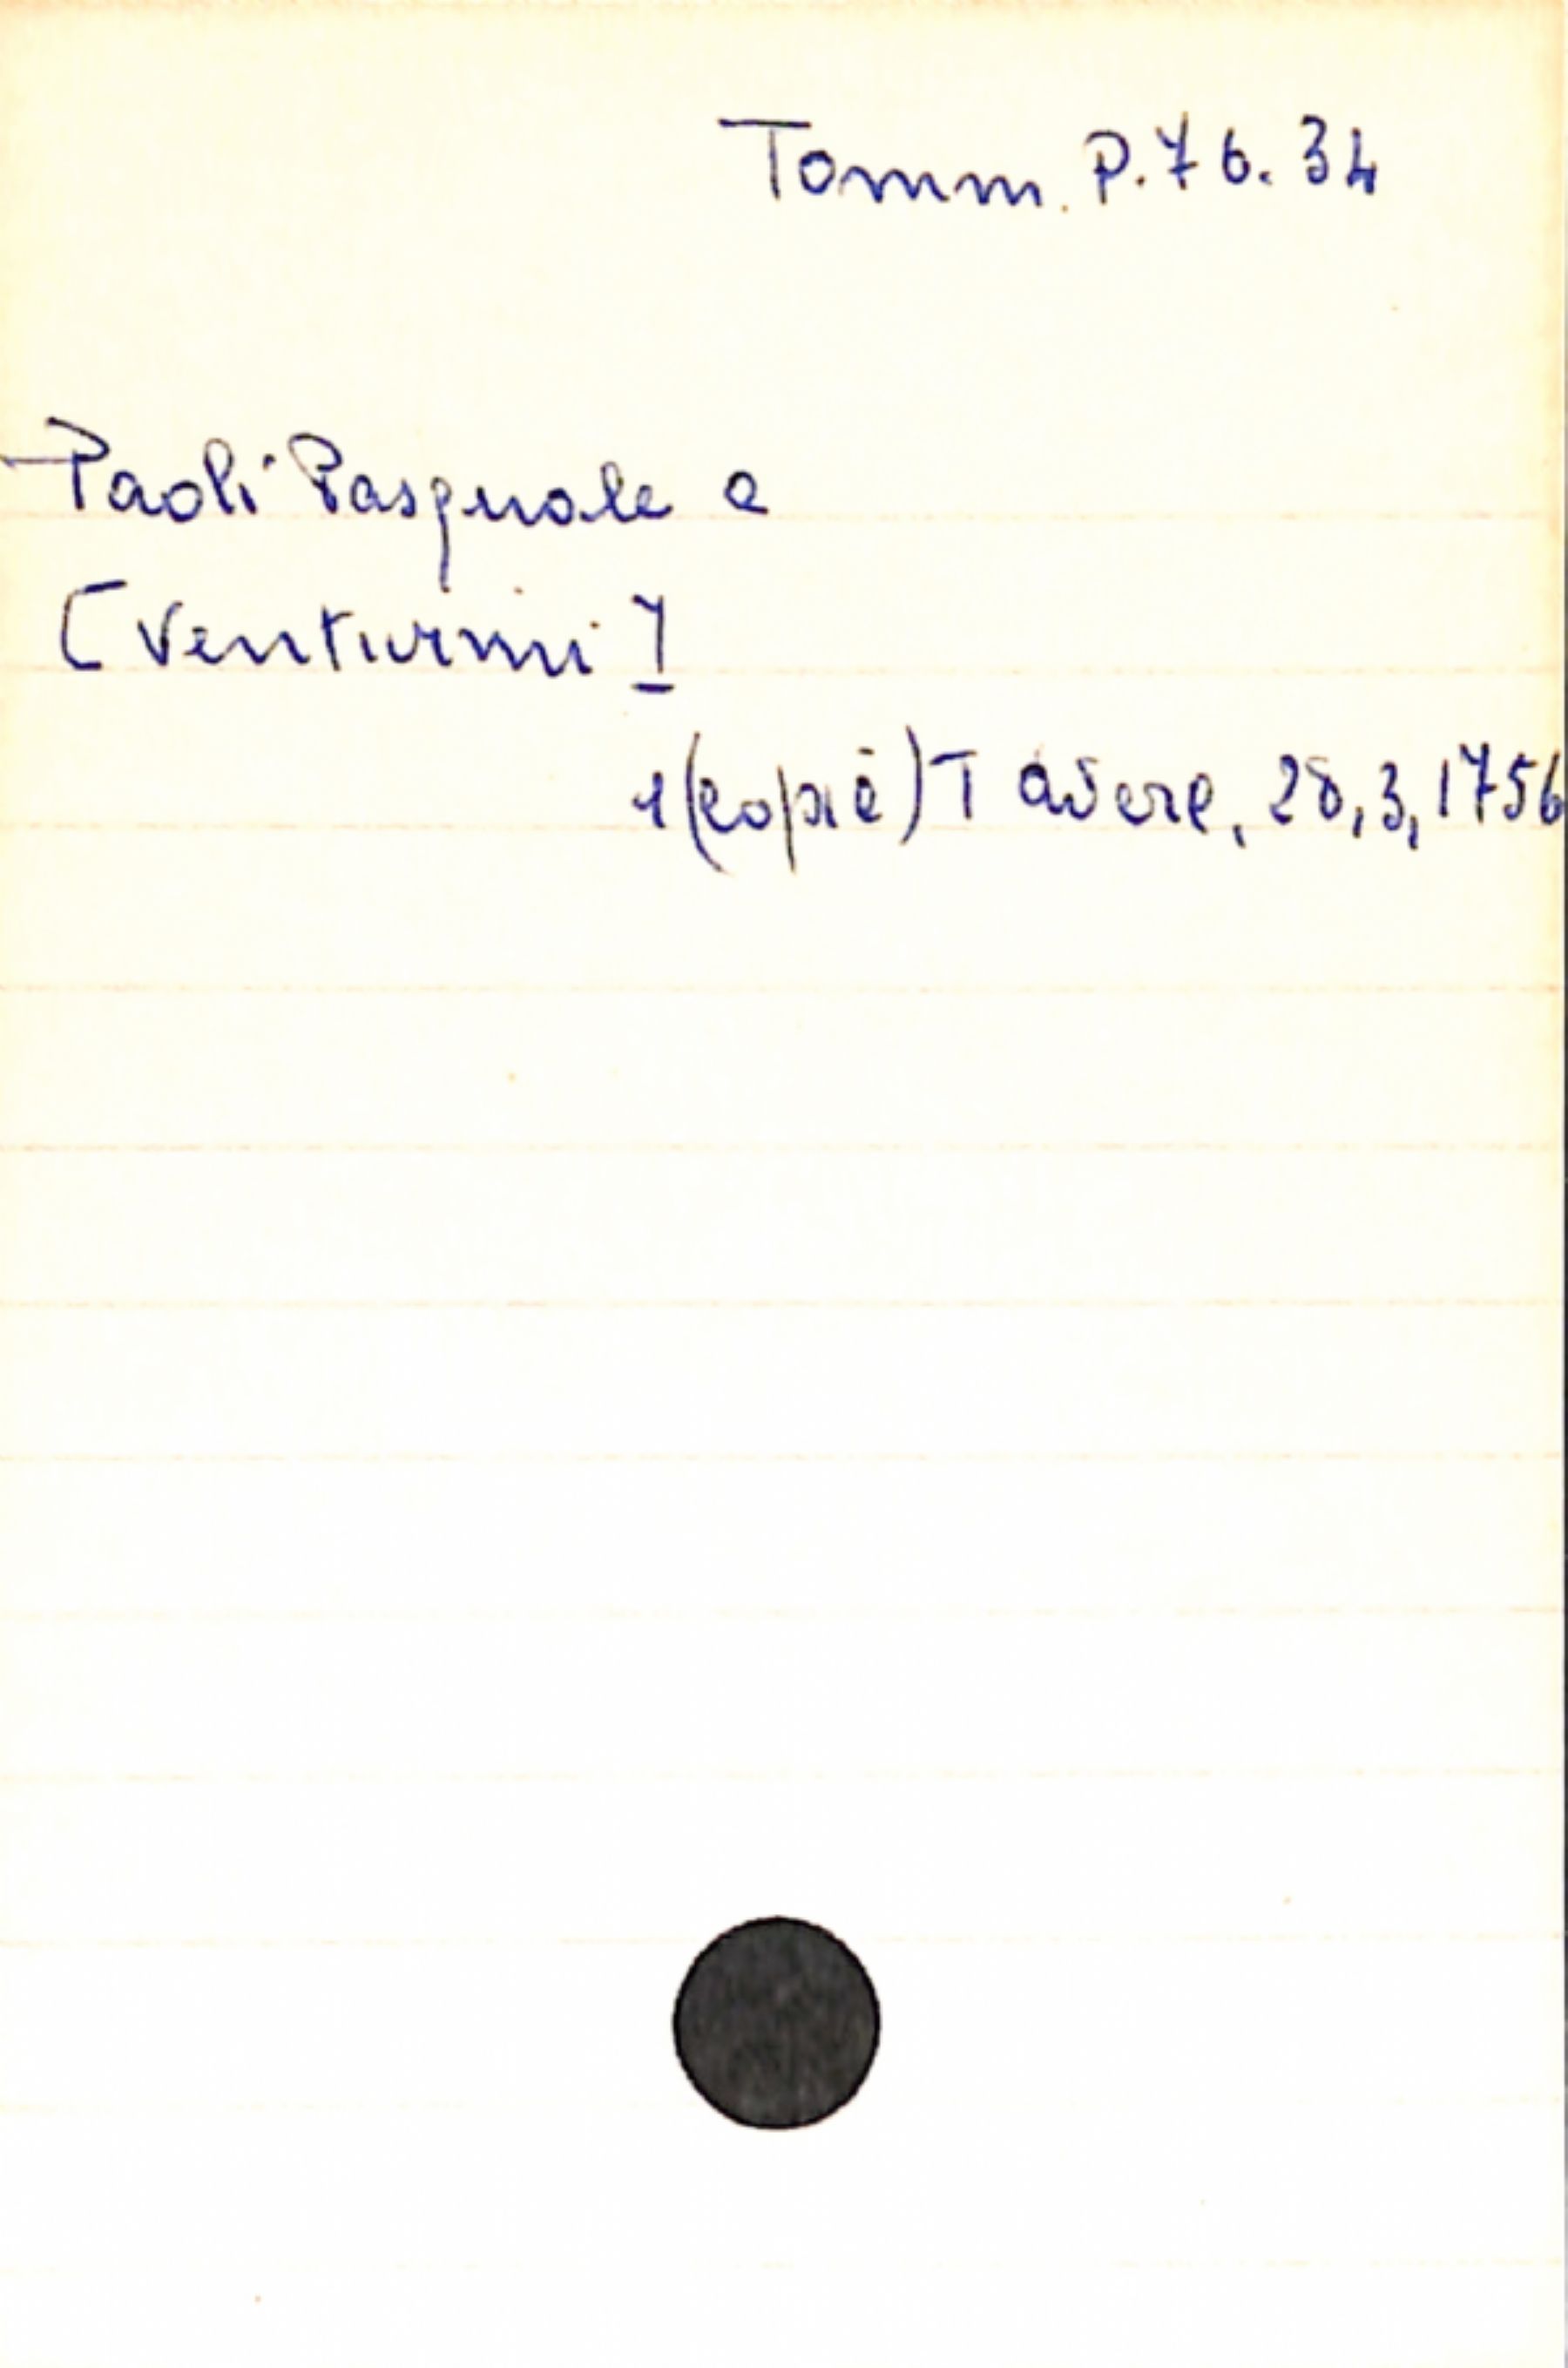 Tomm. P. 76. 34
Paoli Pasquale a
[Venturini]
1 (copie) Tavere, 28, 3, 1756